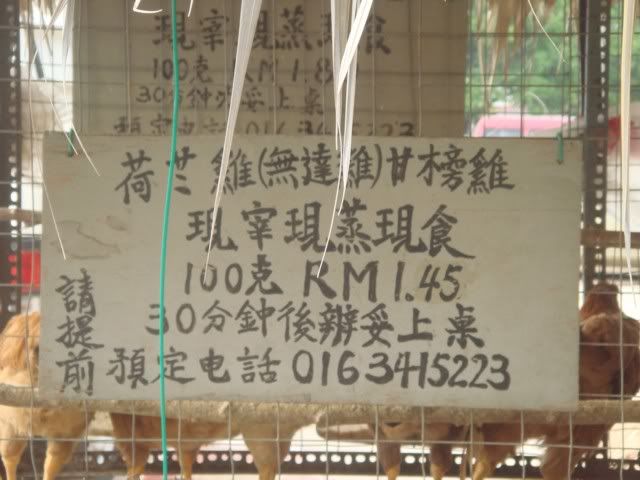 現宰現蒸現食
100克 RM 1.8
30分鐘 妥上桌
預定电話 016
荷兰雞(無達雞)甘榜雞
現宰現蒸現食
100克 RM 1.45
30分鐘後辦妥上桌
請提前
預定电話 0163415223